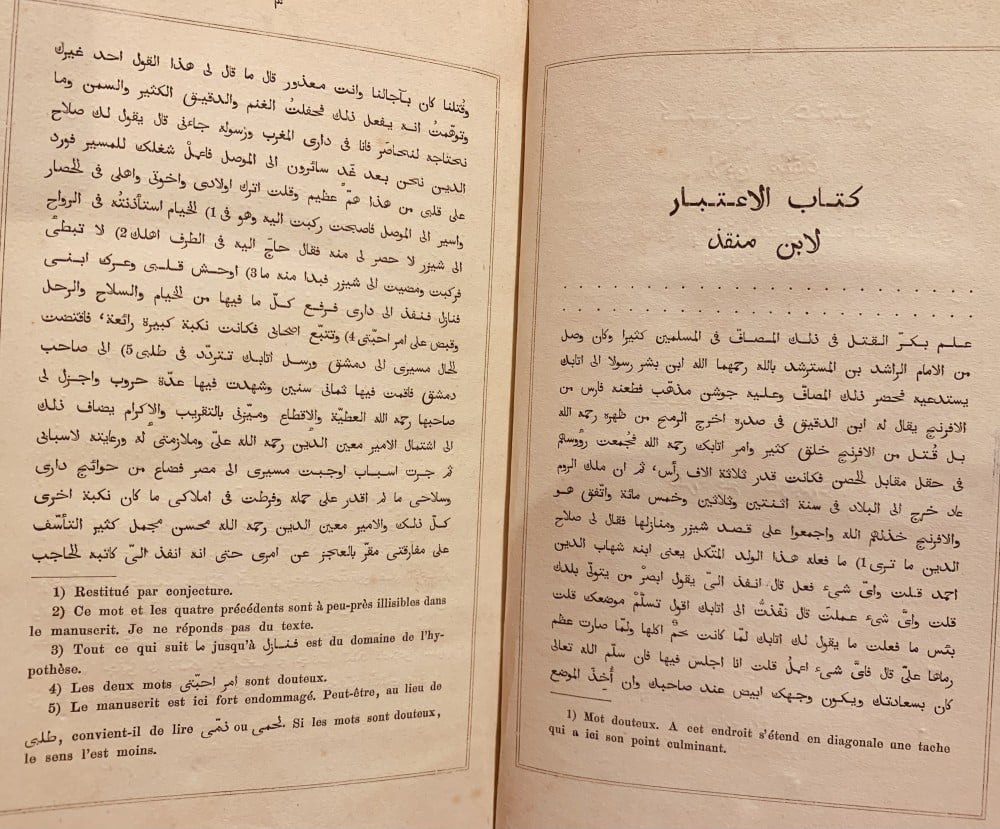 كتاب الاعتبار
لابن منقذ
. . . . . . . . . . . . . . . . . . . .
. . . . . . . . . . . . . . . . . . . .
علم بكر القتل فى ذلك المصافّ فى المسلمين كثيرا وكان وصل
من الامام الراشد بن المسترشد بالله رحمهما الله ابن بشر رسولا الى اتابك
يستدعيه فحضر ذلك المصافّ وعليه جوشن مذهّب فطعنه فارس من
الافرنج يقال له ابن الدقيق فى صدره اخرج الرمح من ظهره رحمه الله
بل قُتل من الافرنج خلق كثير وامر اتابك رحمه الله فجُمعت رؤوسهم
فى حقل مقابل للحصن فكانت قدر ثلاثة الاف رأس، ثم ان ملك الروم
عاد خرج الى البلاد فى سنة اثنتين وثلاثين وخمس مائة واتّفق هو
والافرنج خذلهم الله واجمعوا على قصد شيزر ومنازلها فقال لى صلاح
الدين ما ترى1) ما فعله هذا الولد المثكل يعنى ابنه شهاب الدين
احمد قلت واىّ شىء فعل قال انفذ الىّ يقول ابصرْ من يتولّى بلدك
قلت واىّ شىء عملتَ قال نفّذتُ الى اتابك اقول تسلّمْ موضعك قلت
بئس ما فعلت ما يقول لك اتابك لمّا كانت لحمًا اكلها ولمّا صارت عظم
رماها علىّ قال فاىّ شىء اعمل قلت انا اجلس فيها فان سلّم الله تعالى
كان بسعادتك ويكون وجهك ابيض عند صاحبك وان أُخِذَ الموضع
1) Mot douteux. A cet endroit s'étend en diagonale une tache
qui a ici son point culminant.
٣
وقُتلنا كان بآجالنا وانت معذور قال ما قال لى هذا القول احد غيرك
وتوهّمتُ انه يفعل ذلك فحفلتُ الغنم والدقيق الكثير والسمن وما
نحتاجه لنتحاصَر فانا فى دارى المغرب ورسوله جاءنى قال يقول لك صلاح
الدين نحن بعد غد سائرون الى الموصل فاعملْ شغلك للمسير فورد
على قلبى من هذا همّ عظيم وقلت اترك اولادى واخوتى واهلى فى الحصار
واسير الى الموصل فاصبحت ركبت اليه وهو فى1) الخيام استأذنتُه فى الرواح
الى شيزر لا حصر لى منه فقال حاجَ اليه فى الطرف اهلك2) لا تبطئ
فركبت ومضيت الى شيزر فبدا منه ما3) اوحش قلبى وعرك ابنى
فنازل فنفذ الى دارى فرفع كلّ ما فيها من الخيام والسلاح والرحل
وقبض على امر احبّتى4) وتتبّع اصحابى فكانت نكبة كبيرة رائعة، فاقتضت
الحال مسيرى الى دمشق ورسل اتابك تتردّد فى طلبى5) الى صاحب
دمشق فاقمت فيها ثمانى سنين وشهدت فيها عدّة حروب واجزل لى
صاحبها رحمه الله العطيّة والاقطاع وميّزنى بالتقريب والاكرام يضاف ذلك
الى اشتمال الامير معين الدين رحمه الله علىّ وملازمتى له ورعايته لاسبابى
ثم جرت اسباب اوجبت مسيرى الى مصر فضاع من حوائج دارى
وسلاحى ما لم اقدر على حمله وفرطت فى املاكى ما كان نكبة اخرى
كلّ ذلك والامير معين الدين رحمه الله محسن مجمل كثير التأسّف
على مفارقتى مقرّ بالعجز عن امرى حتى انه انفذ الىّ كاتبه الحاجب
1) Restitué par conjecture.
2) Ce mot et les quatre précédents sont à peu-près illisibles dans
le manuscrit. Je ne réponds pas du texte.
3) Tout ce qui suit ما jusqu'à فنازل est du domaine de l'hy-
pothèse.
4) Les deux mots امر احبّتى sont douteux.
5) Le manuscrit est ici fort endommagé. Peut-être, au lieu de
طلبى, convient-il de lire ذمّى ou لحمى. Si les mots sont douteux,
le sens l'est moins.